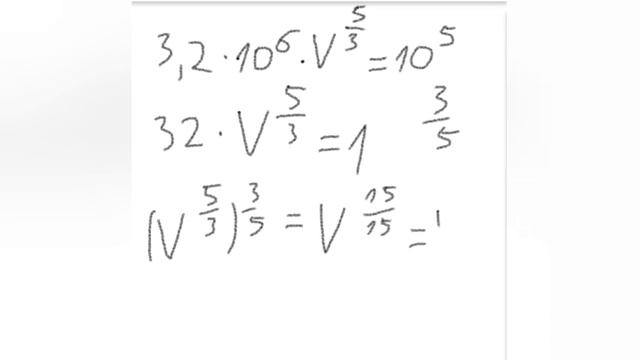 3,2 · 10⁶ · V^(5/3) = 10⁵
32 · V^(5/3) = 1 3/5
(V^(5/3))^(3/5) = V^(15/15) =